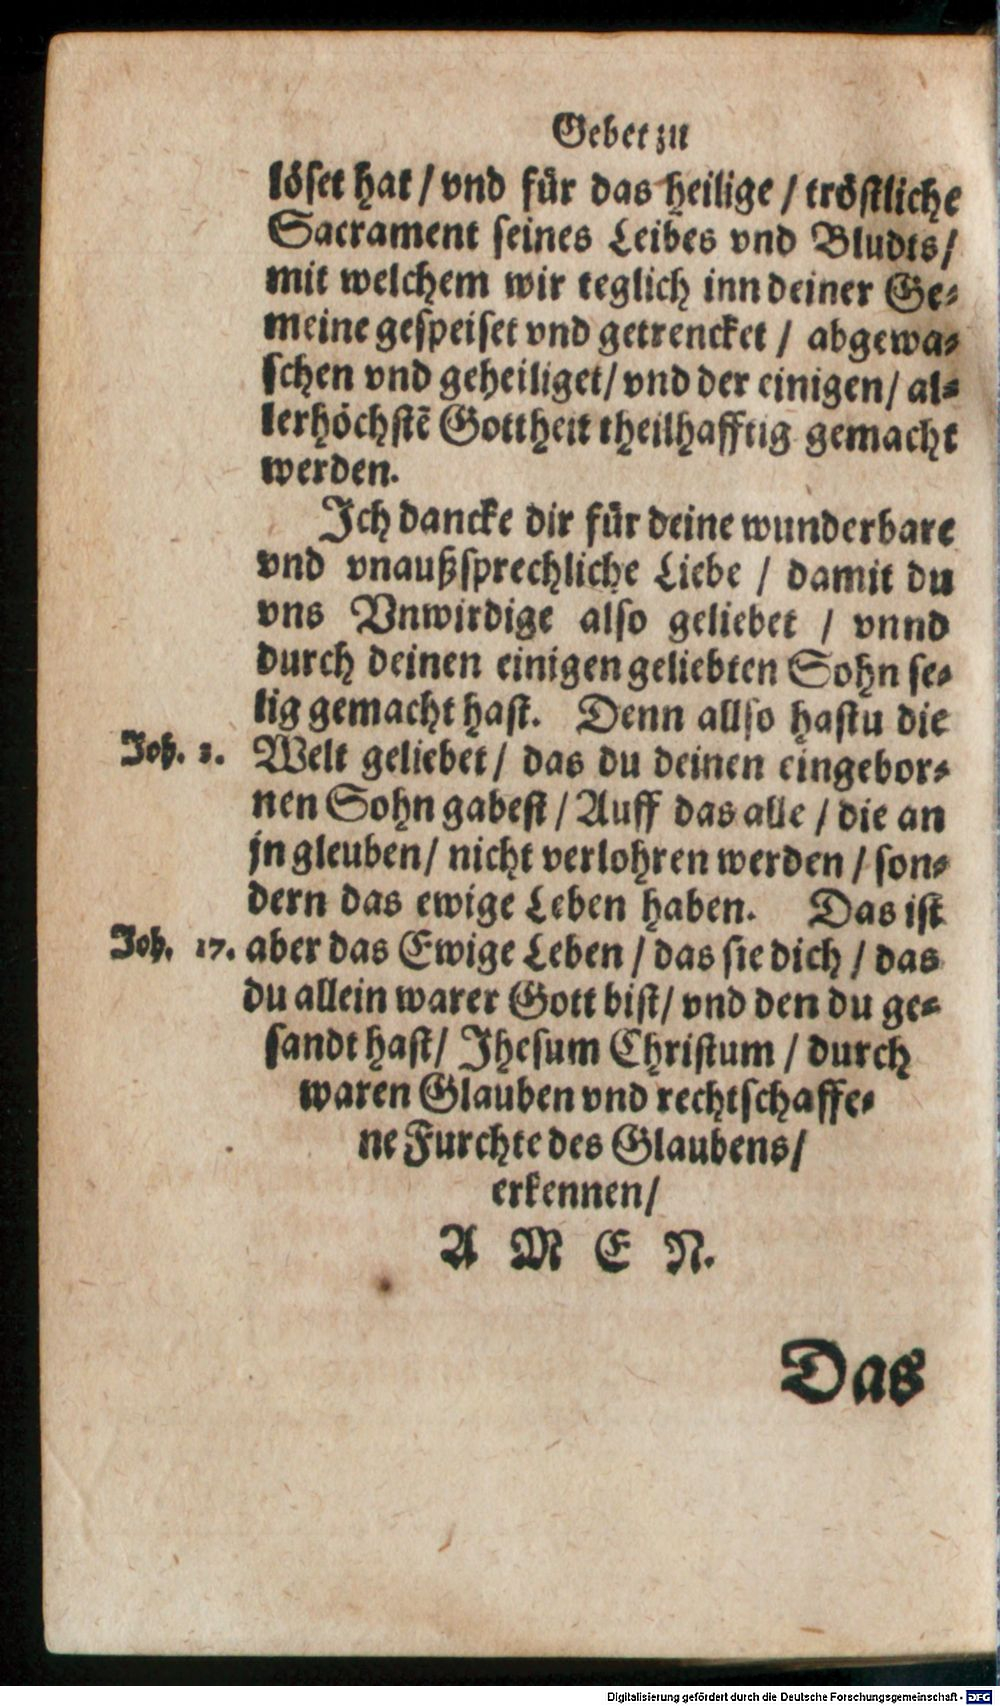 Gebet zu
löset hat / vnd für das heilige / tröstliche
Sacrament seines Leibes vnd Bludts /
mit welchem wir teglich inn deiner Ge-
meine gespeiset vnd getrencket / abgewa-
schen vnd geheiliget / vnd der einigen / al-
lerhöchstẽ Gottheit theilhafftig gemacht
werden.
Ich dancke dir für deine wunderbare
vnd vnaußsprechliche Liebe / damit du
vns Vnwirdige also geliebet / vnnd
durch deinen einigen geliebten Sohn se-
lig gemacht hast. Denn allso hastu die
Joh. 3. Welt geliebet / das du deinen eingebor-
nen Sohn gabest / Auff das alle / die an
jn gleuben / nicht verlohren werden / son-
dern das ewige Leben haben. Das ist
Joh. 17. aber das Ewige Leben / das sie dich / das
du allein warer Gott bist / vnd den du ge-
sandt hast / Jhesum Christum / durch
waren Glauben vnd rechtschaffe-
ne Furchte des Glaubens /
erkennen /
A M E N.
Das
Digitalisierung gefördert durch die Deutsche Forschungsgemeinschaft - DFG